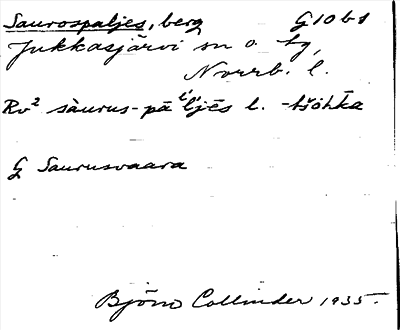 Saurospaljes, berg G10b1
Jukkasjärvi sn o. tg,
Norrb. l.
Rv² sàurus-pā'l'jēs l. -tšòhka
G Saurusvaara
Björn Collinder 1935.